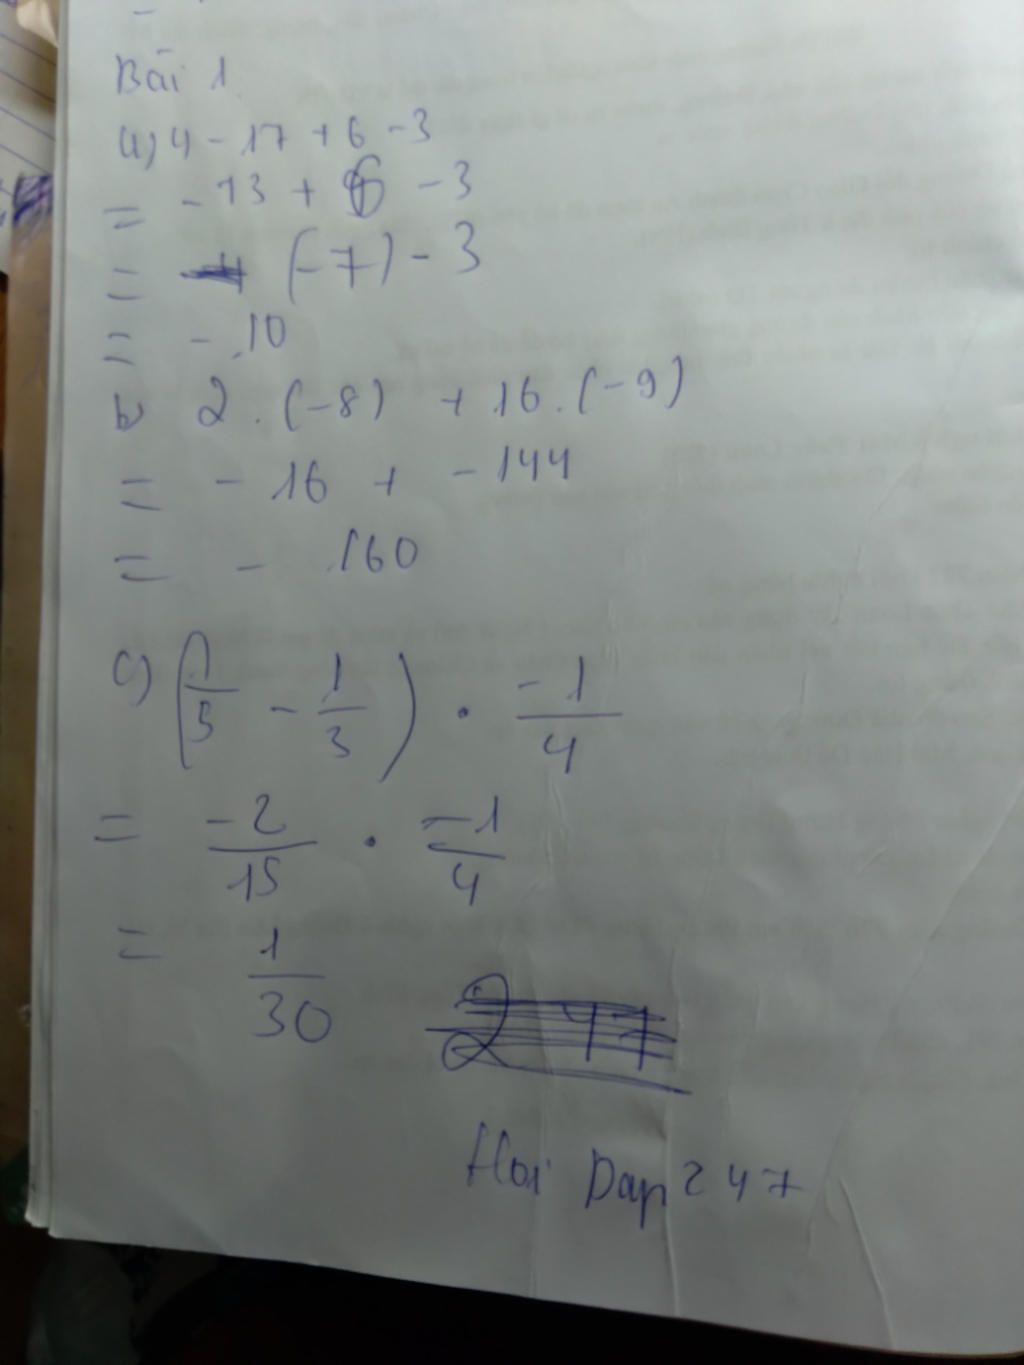 Bài 1
a) 4 - 17 + 6 - 3
= - 13 + 6 - 3
= (-7) - 3
= - 10
b 2 . (-8) + 16 . (-9)
= - 16 + - 144
= - 160
c) (1/3 - 1/3) . -1/4
= -2/15 . -1/4
= 1/30
247
Hoi Dap 247